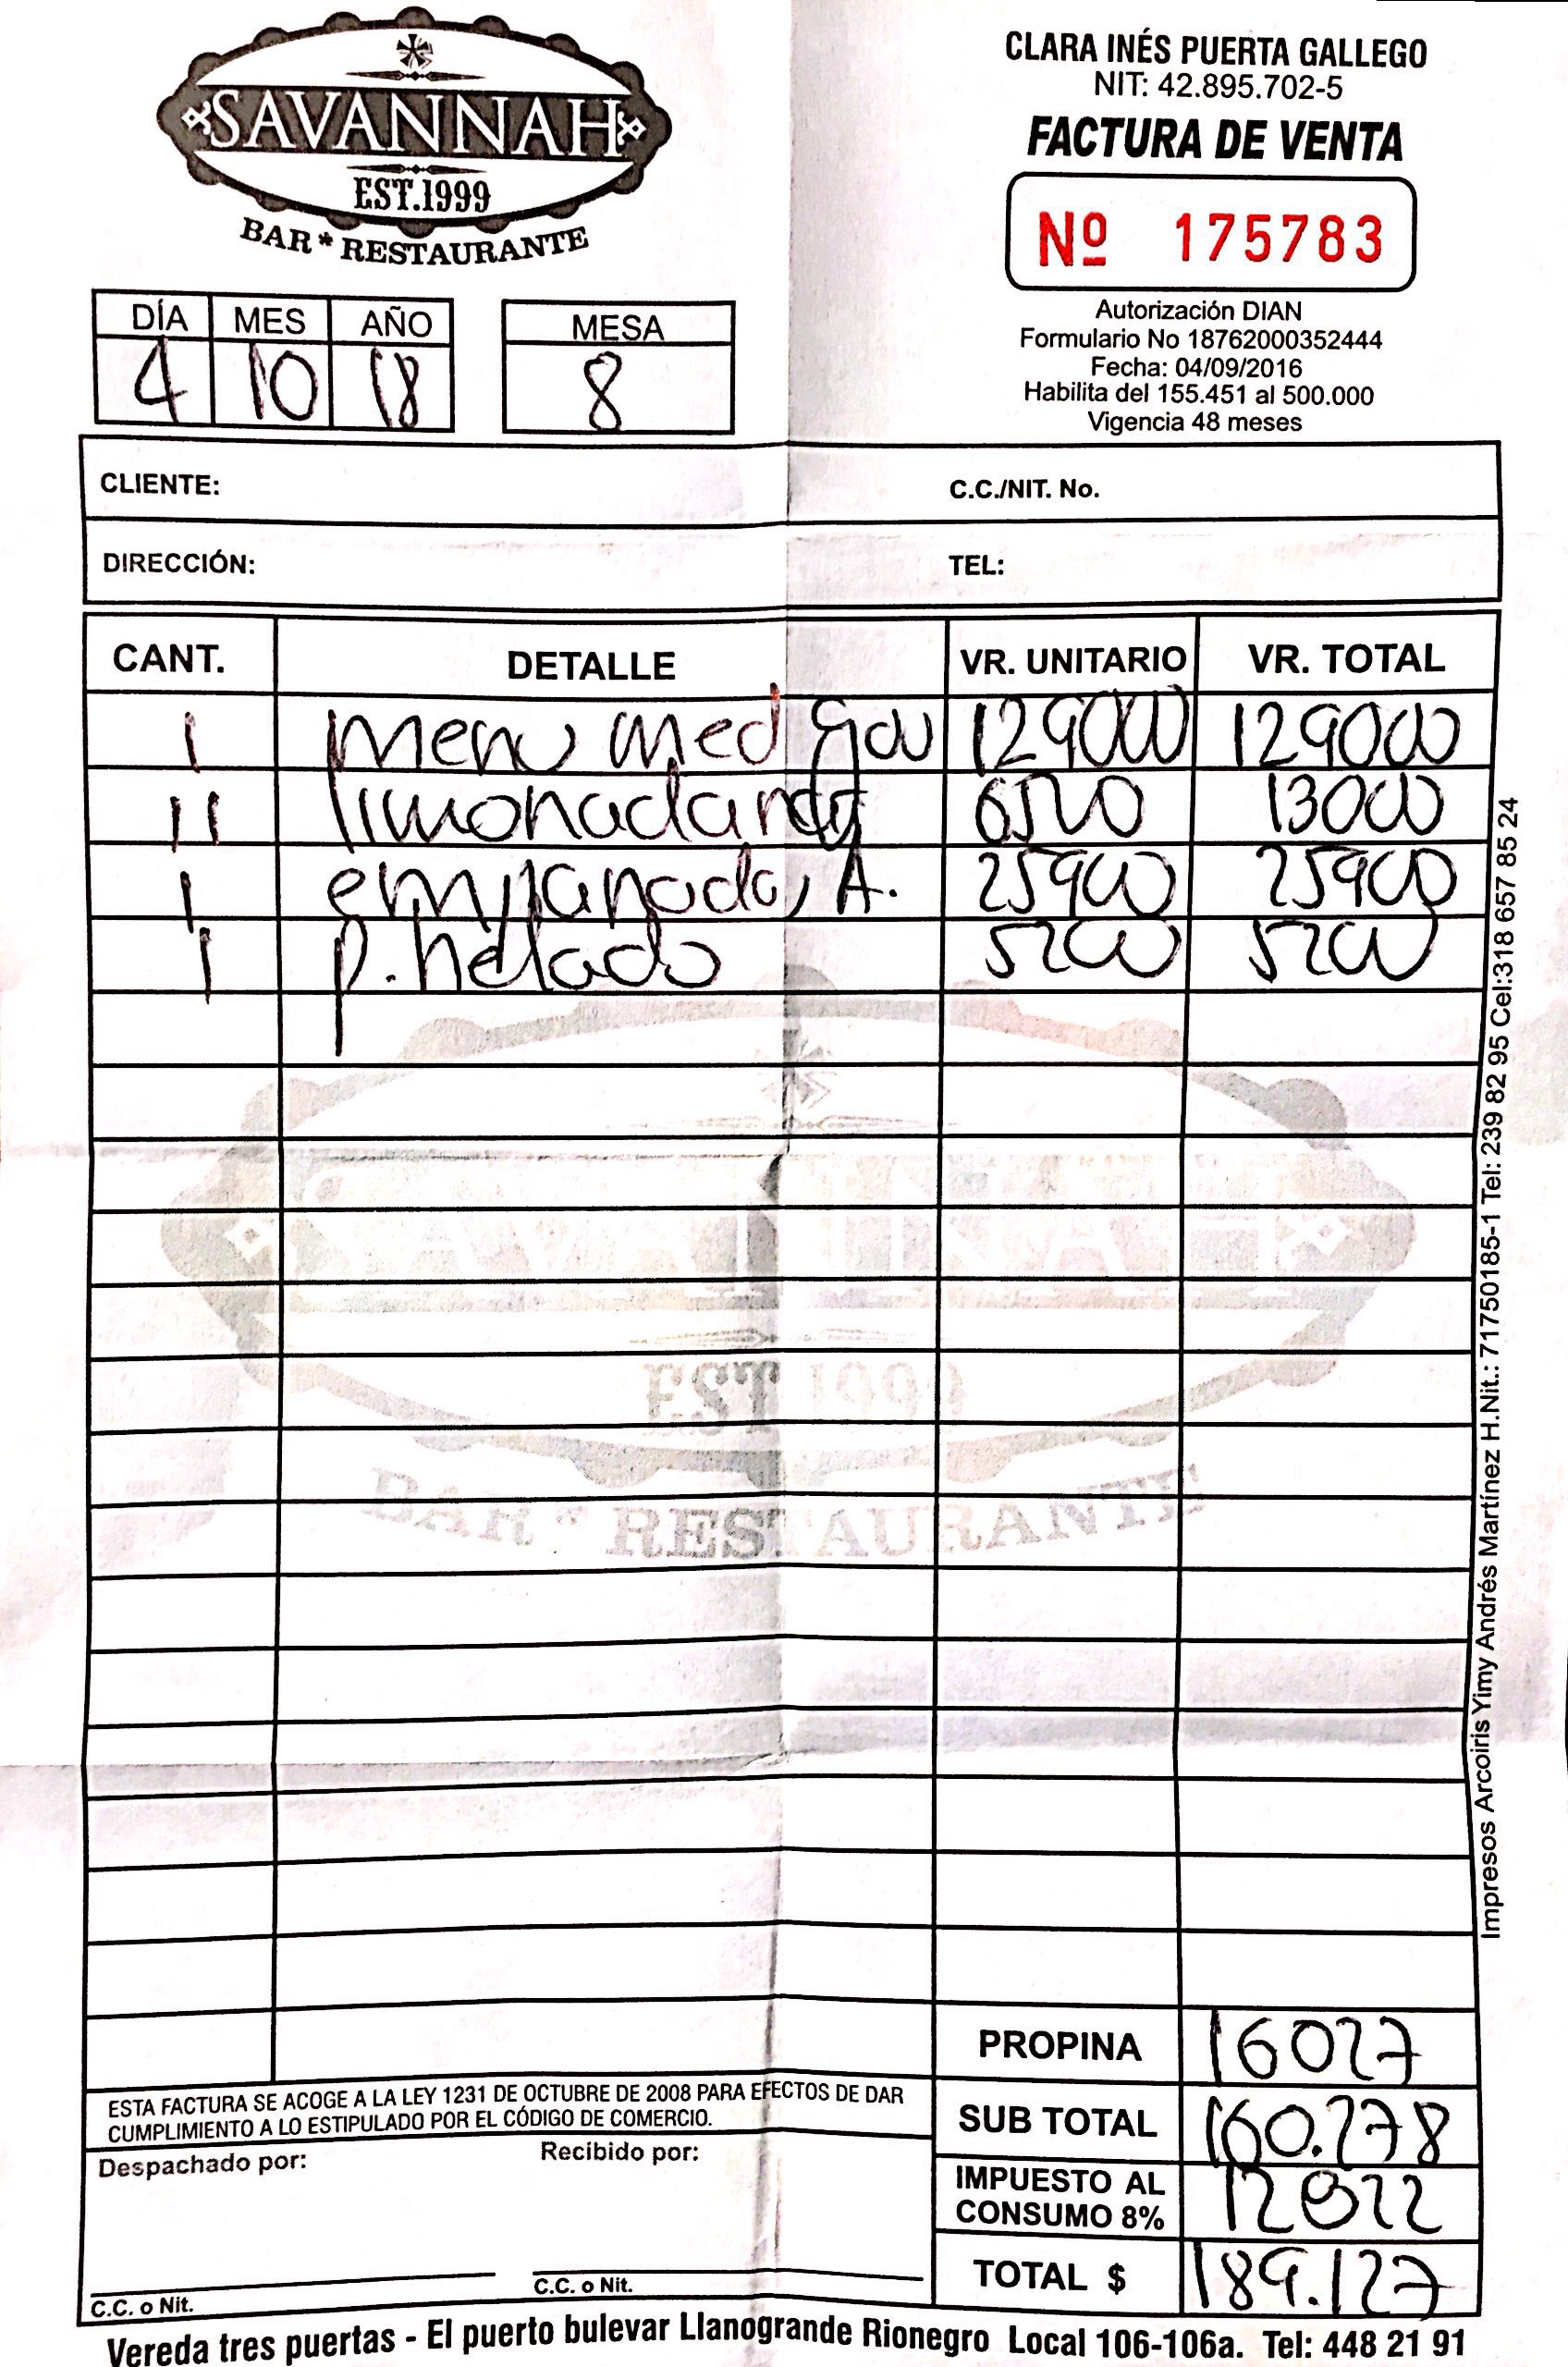 SAVANNAH
EST.1999
BAR * RESTAURANTE
CLARA INÉS PUERTA GALLEGO
NIT: 42.895.702-5
FACTURA DE VENTA
Nº 175783
Autorización DIAN
Formulario No 18762000352444
Fecha: 04/09/2016
Habilita del 155.451 al 500.000
Vigencia 48 meses
DÍA MES AÑO MESA
4 10 18 8
CLIENTE: C.C./NIT. No.
DIRECCIÓN: TEL:
CANT. DETALLE VR. UNITARIO VR. TOTAL
1 Menu Med 129000 129000
11 limonada 6500 13000
1 empanada, A. 25900 25900
1 p. helado 5200 5200
SAVANNAH
EST 1999
BAR * RESTAURANTE
PROPINA 16027
SUB TOTAL 160.278
IMPUESTO AL CONSUMO 8% 12822
TOTAL $ 189.127
ESTA FACTURA SE ACOGE A LA LEY 1231 DE OCTUBRE DE 2008 PARA EFECTOS DE DAR
CUMPLIMIENTO A LO ESTIPULADO POR EL CÓDIGO DE COMERCIO.
Despachado por: Recibido por:
C.C. o Nit. C.C. o Nit.
Vereda tres puertas - El puerto bulevar Llanogrande Rionegro Local 106-106a. Tel: 448 21 91
Impresos Arcoiris Yimy Andrés Martínez H.Nit.: 71750185-1 Tel: 239 82 95 Cel:318 657 85 24